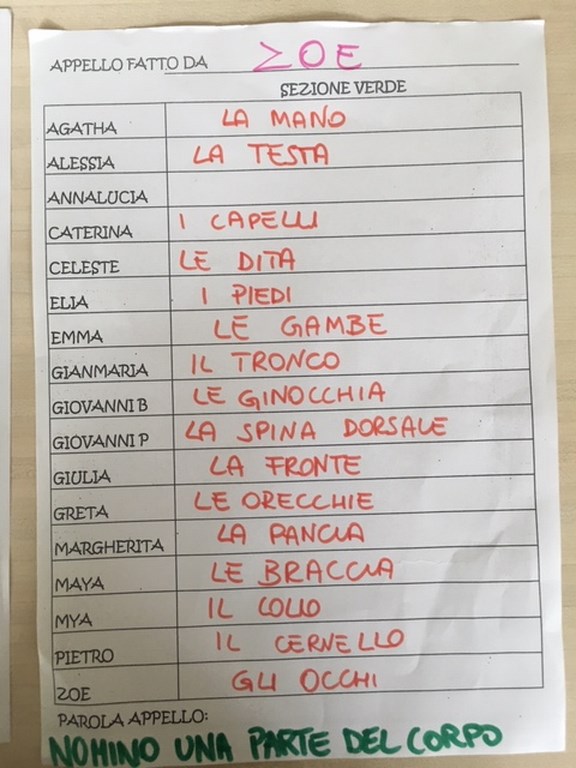 APPELLO FATTO DA ZOE
SEZIONE VERDE
AGATHA LA MANO
ALESSIA LA TESTA
ANNALUCIA
CATERINA I CAPELLI
CELESTE LE DITA
ELIA I PIEDI
EMMA LE GAMBE
GIANMARIA IL TRONCO
GIOVANNI B LE GINOCCHIA
GIOVANNI P LA SPINA DORSALE
GIULIA LA FRONTE
GRETA LE ORECCHIE
MARGHERITA LA PANCIA
MAYA LE BRACCIA
MYA IL COLLO
PIETRO IL CERVELLO
ZOE GLI OCCHI
PAROLA APPELLO:
NOMINO UNA PARTE DEL CORPO